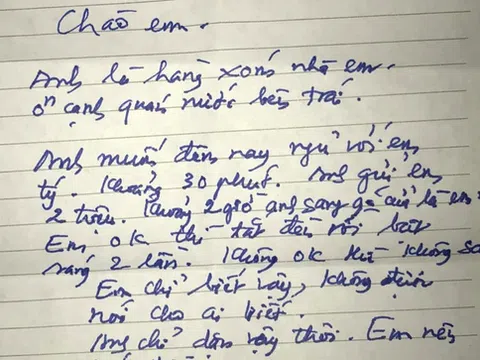 Chào em.
Anh là hàng xóm nhà em.
ở cạnh quán nước bên trái.
Anh muốn đêm nay ngủ với em
tý. Khoảng 30 phút. Anh gửi em
2 triệu. Khoảng 2 giờ anh sang gõ cửa là em
Em ok thì tắt đèn rồi bật
sáng 2 lần. Không ok thì không
Em chỉ biết vậy, không được
nói cho ai biết.
Anh chỉ dặn vậy thôi. Em nên